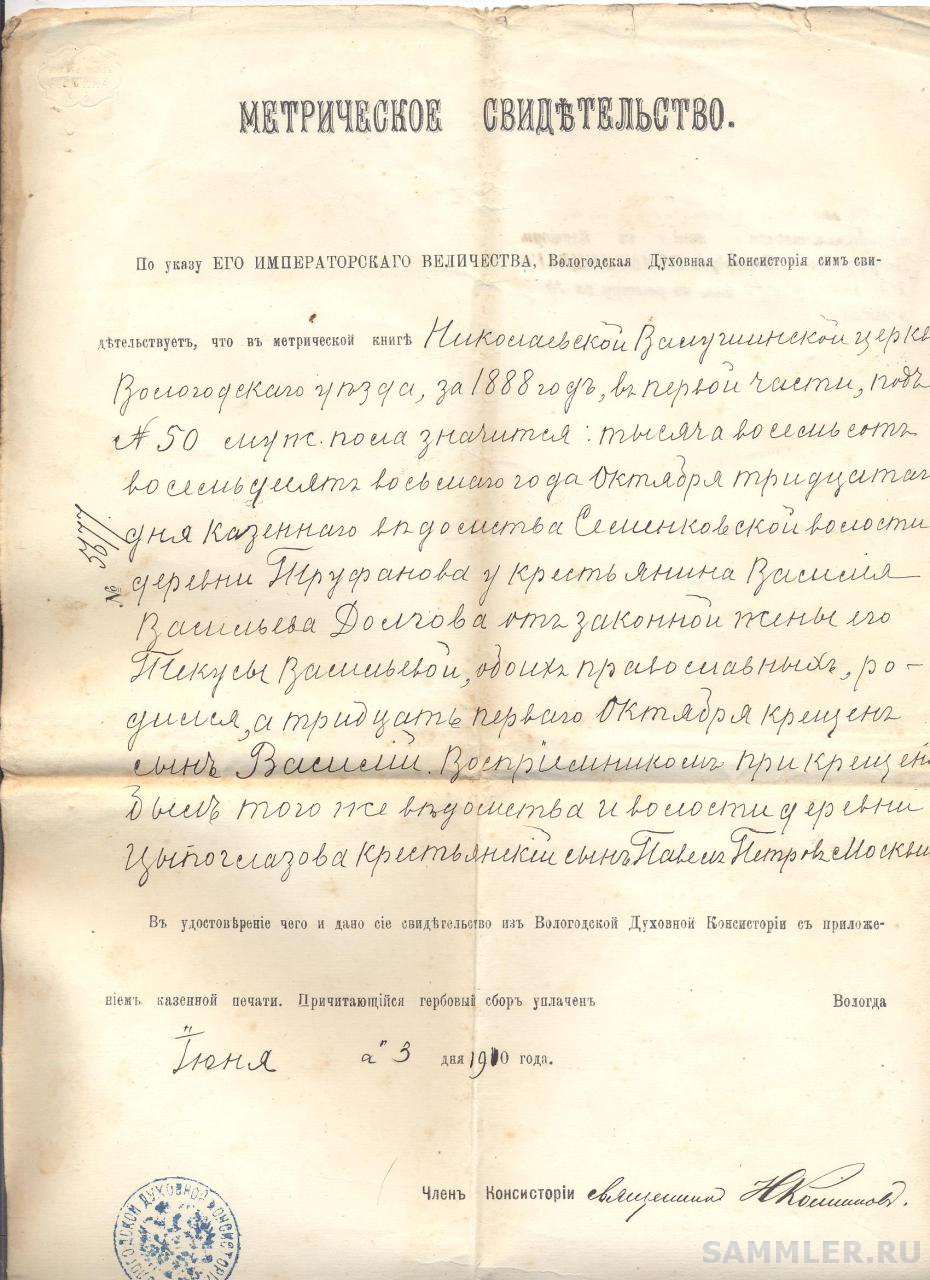 МЕТРИЧЕСКОЕ СВИДѢТЕЛЬСТВО.
По указу ЕГО ИМПЕРАТОРСКАГО ВЕЛИЧЕСТВА, Вологодская Духовная Консисторія симъ сви-
дѣтельствуетъ, что въ метрической книгѣ Николаевской Валушинской церкв
Вологодскаго уѣзда, за 1888 годъ, въ первой части, подъ
№ 50 муж. пола значится: тысяча восемьсотъ
восемьдесятъ восьмаго года Октября тридцатаг
дня казеннаго вѣдомства Семенковской волости
деревни Труфанова у крестьянина Василія
Васильева Долгова отъ законной жены его
Текусы Васильевой, обоихъ православныхъ, ро-
дился, а тридцать перваго Октября крещенъ
сынъ Василій. Воспріемникомъ при крещен
былъ того же вѣдомства и волости деревни
Цыпоглазова крестьянскій сынъ Павелъ Петровъ Москви
№
Въ удостовѣреніе чего и дано сіе свидѣтельство изъ Вологодской Духовной Консисторіи съ приложе-
ніемъ казенной печати. Причитающійся гербовый сборъ уплаченъ Вологда
Іюня "3 дня 1910 года.
Членъ Консисторіи священникъ Н
ВОЛОГОДСКОЙ ДУХОВНОЙ КОНСИСТОРІИ
SAMMLER.RU